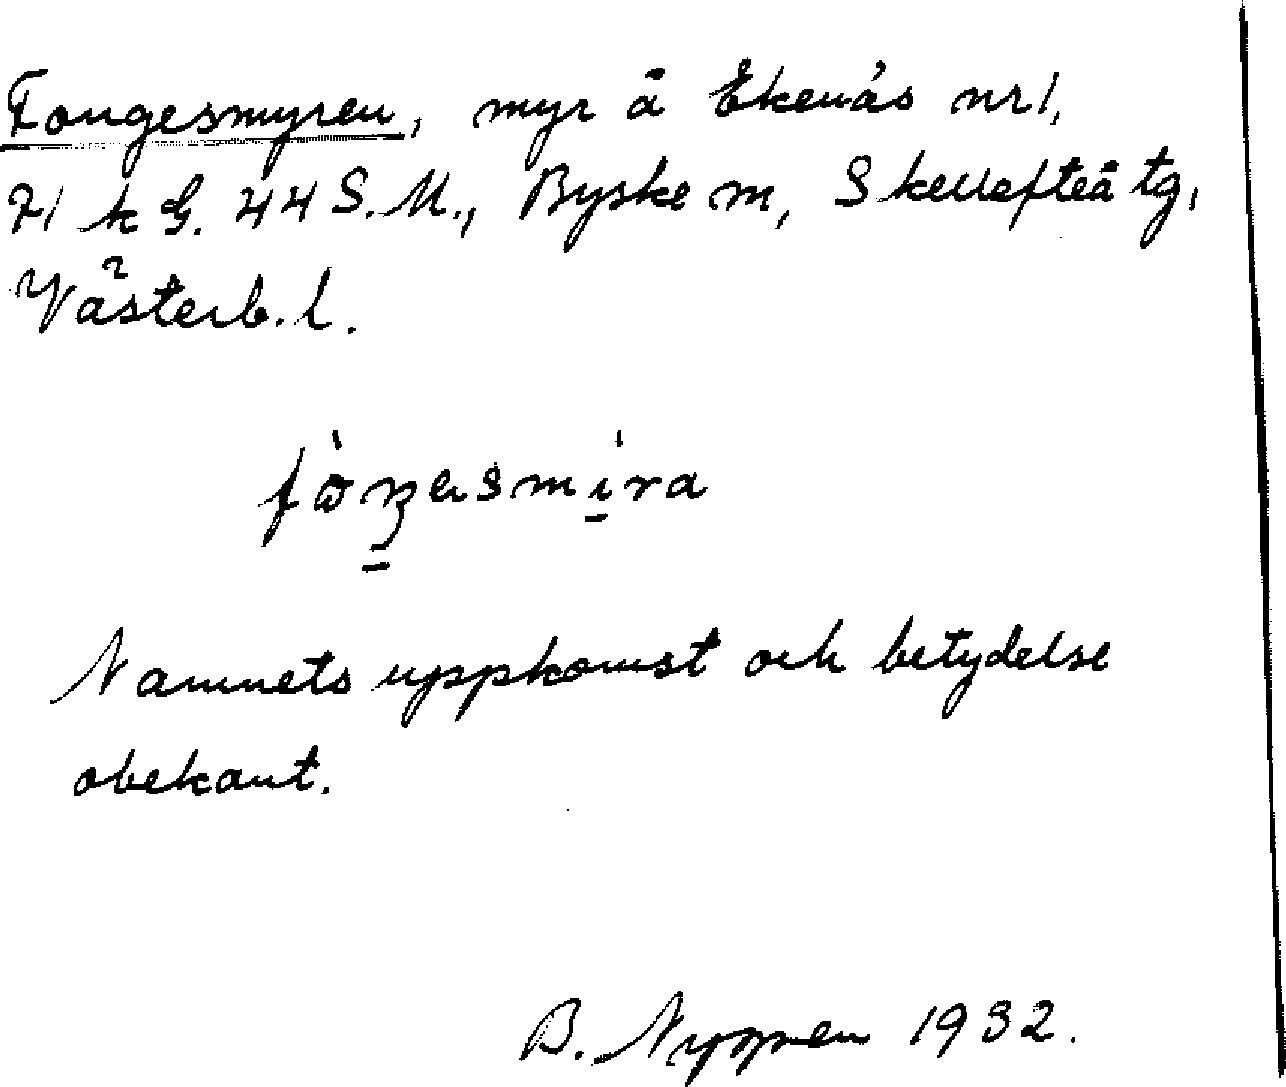 Fongesmyren, myr å Ekenäs nr 1,
71 k G. 44 S.M., Byske sn, Skellefteå tg,
Västerb. l.
Namnets uppkomst och betydelse
obekant.
B. Nygren 1932.